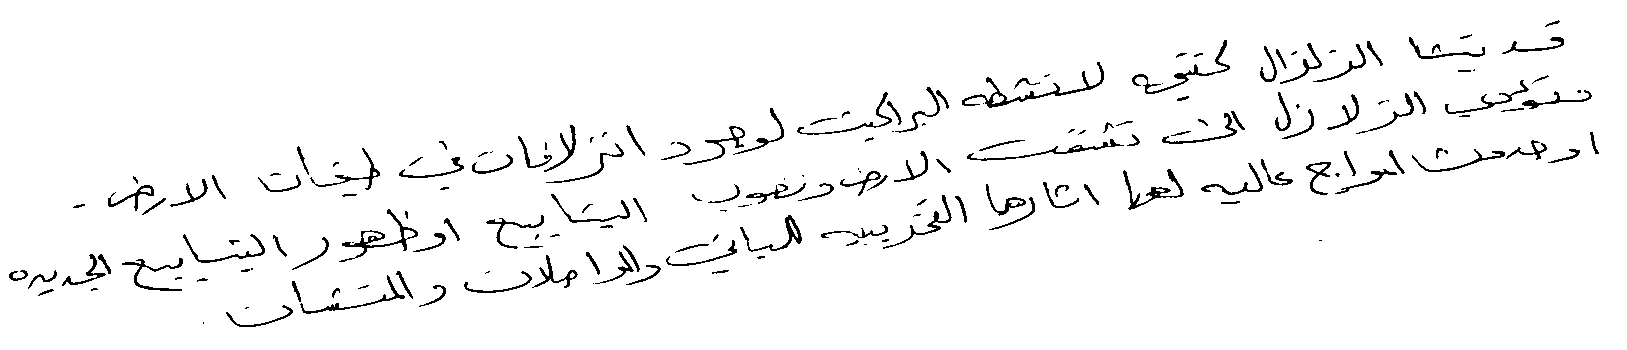 قد ينشا الزلزال كنتيجه لانشطه البراكين لوجود انزلاقات في طبقات الارض.
وتؤدي الزلازل الى تشقق الارض ونضوب الينابيع او ظهور الينابيع الجديده
او حدوث امواج عاليه لها اثارها التخريبيه للمباني والمواصلات والمنشات.